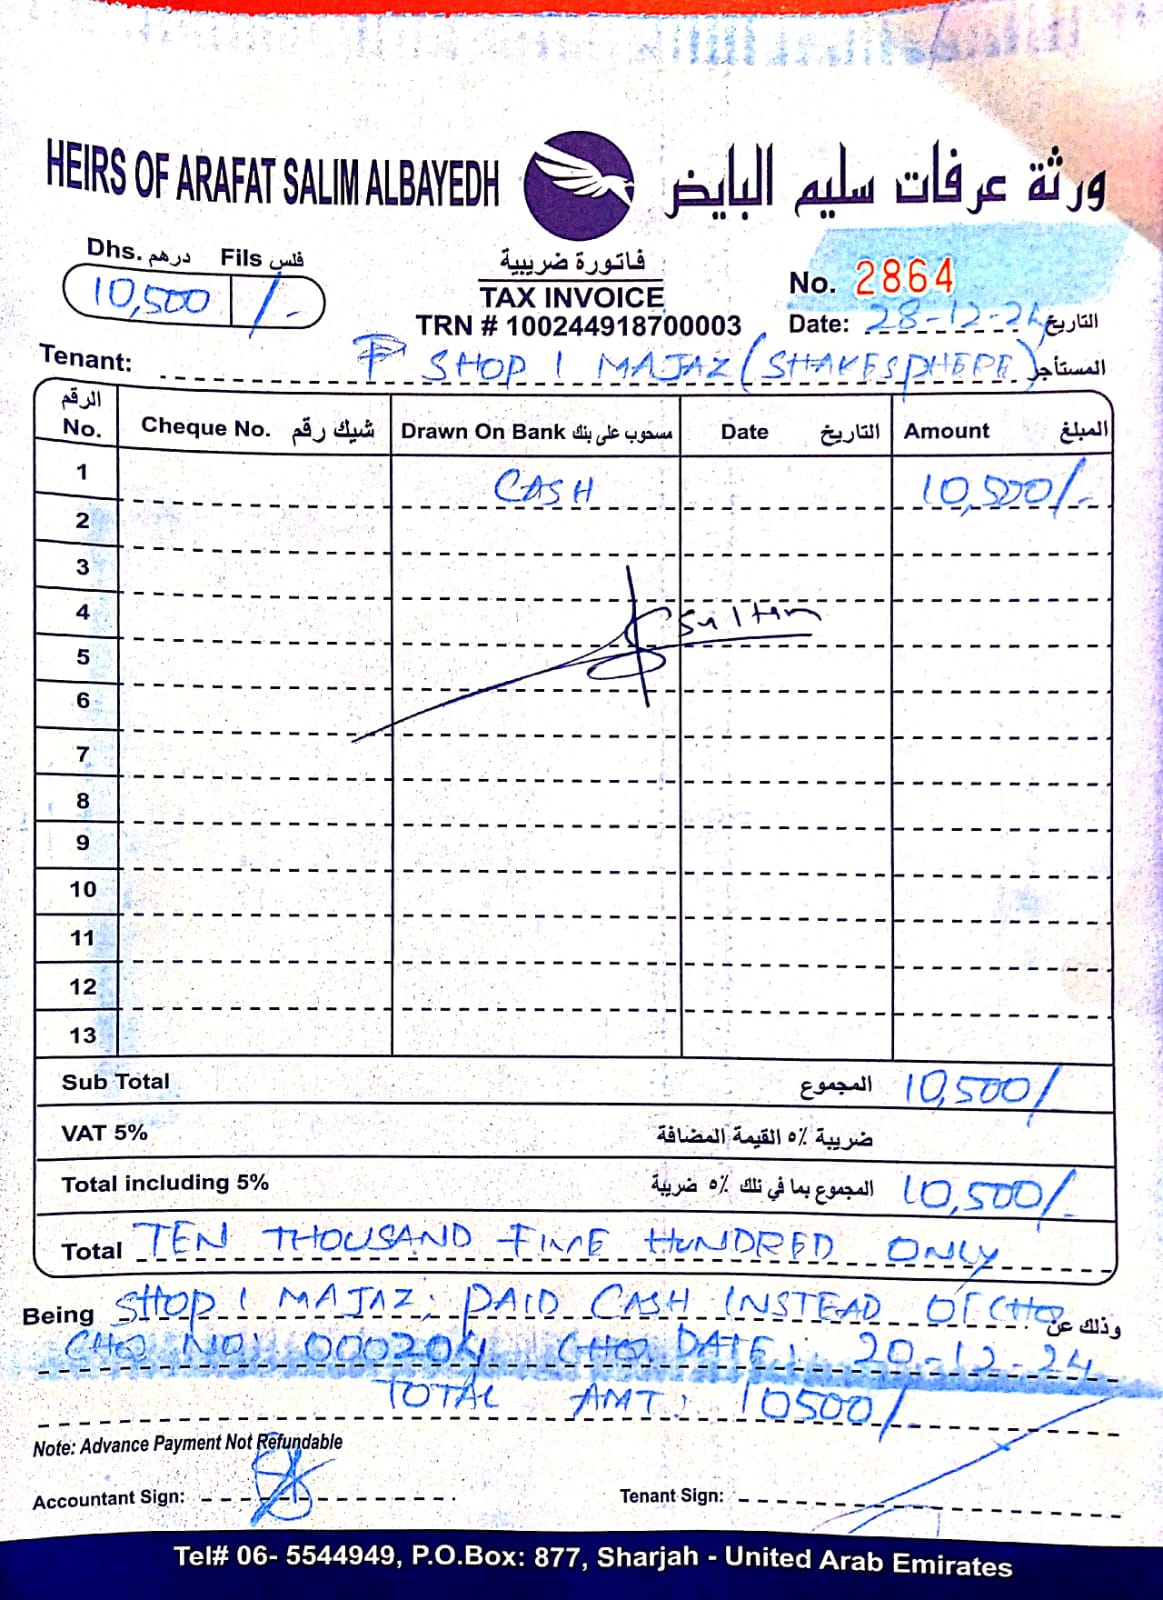 HEIRS OF ARAFAT SALIM ALBAYEDH ورثة عرفات سليم البايض
Dhs. درهم Fils فلس
10,500 /-
فاتورة ضريبية
TAX INVOICE
TRN # 100244918700003
No. 2864
Date: 28-12-24 التاريخ
Tenant: SHOP 1 MAJAZ (SHAKESPHEPE) المستأجر
الرقم No. Cheque No. شيك رقم Drawn On Bank مسحوب على بنك Date التاريخ Amount المبلغ
1 CASH 10,500/-
2
3
4 Sultan
5
6
7
8
9
10
11
12
13
Sub Total المجموع 10,500/
VAT 5% ضريبة ٥٪ القيمة المضافة
Total including 5% المجموع بما في تلك ٥٪ ضريبة 10,500/-
Total TEN THOUSAND FIVE HUNDRED ONLY
Being SHOP 1 MAJAZ: PAID CASH INSTEAD OF CHQ وذلك عن
CHQ NO: 000204 CHQ DATE: 20-12-24
TOTAL AMT: 10500/-
Note: Advance Payment Not Refundable
Accountant Sign: Tenant Sign:
Tel# 06- 5544949, P.O.Box: 877, Sharjah - United Arab Emirates